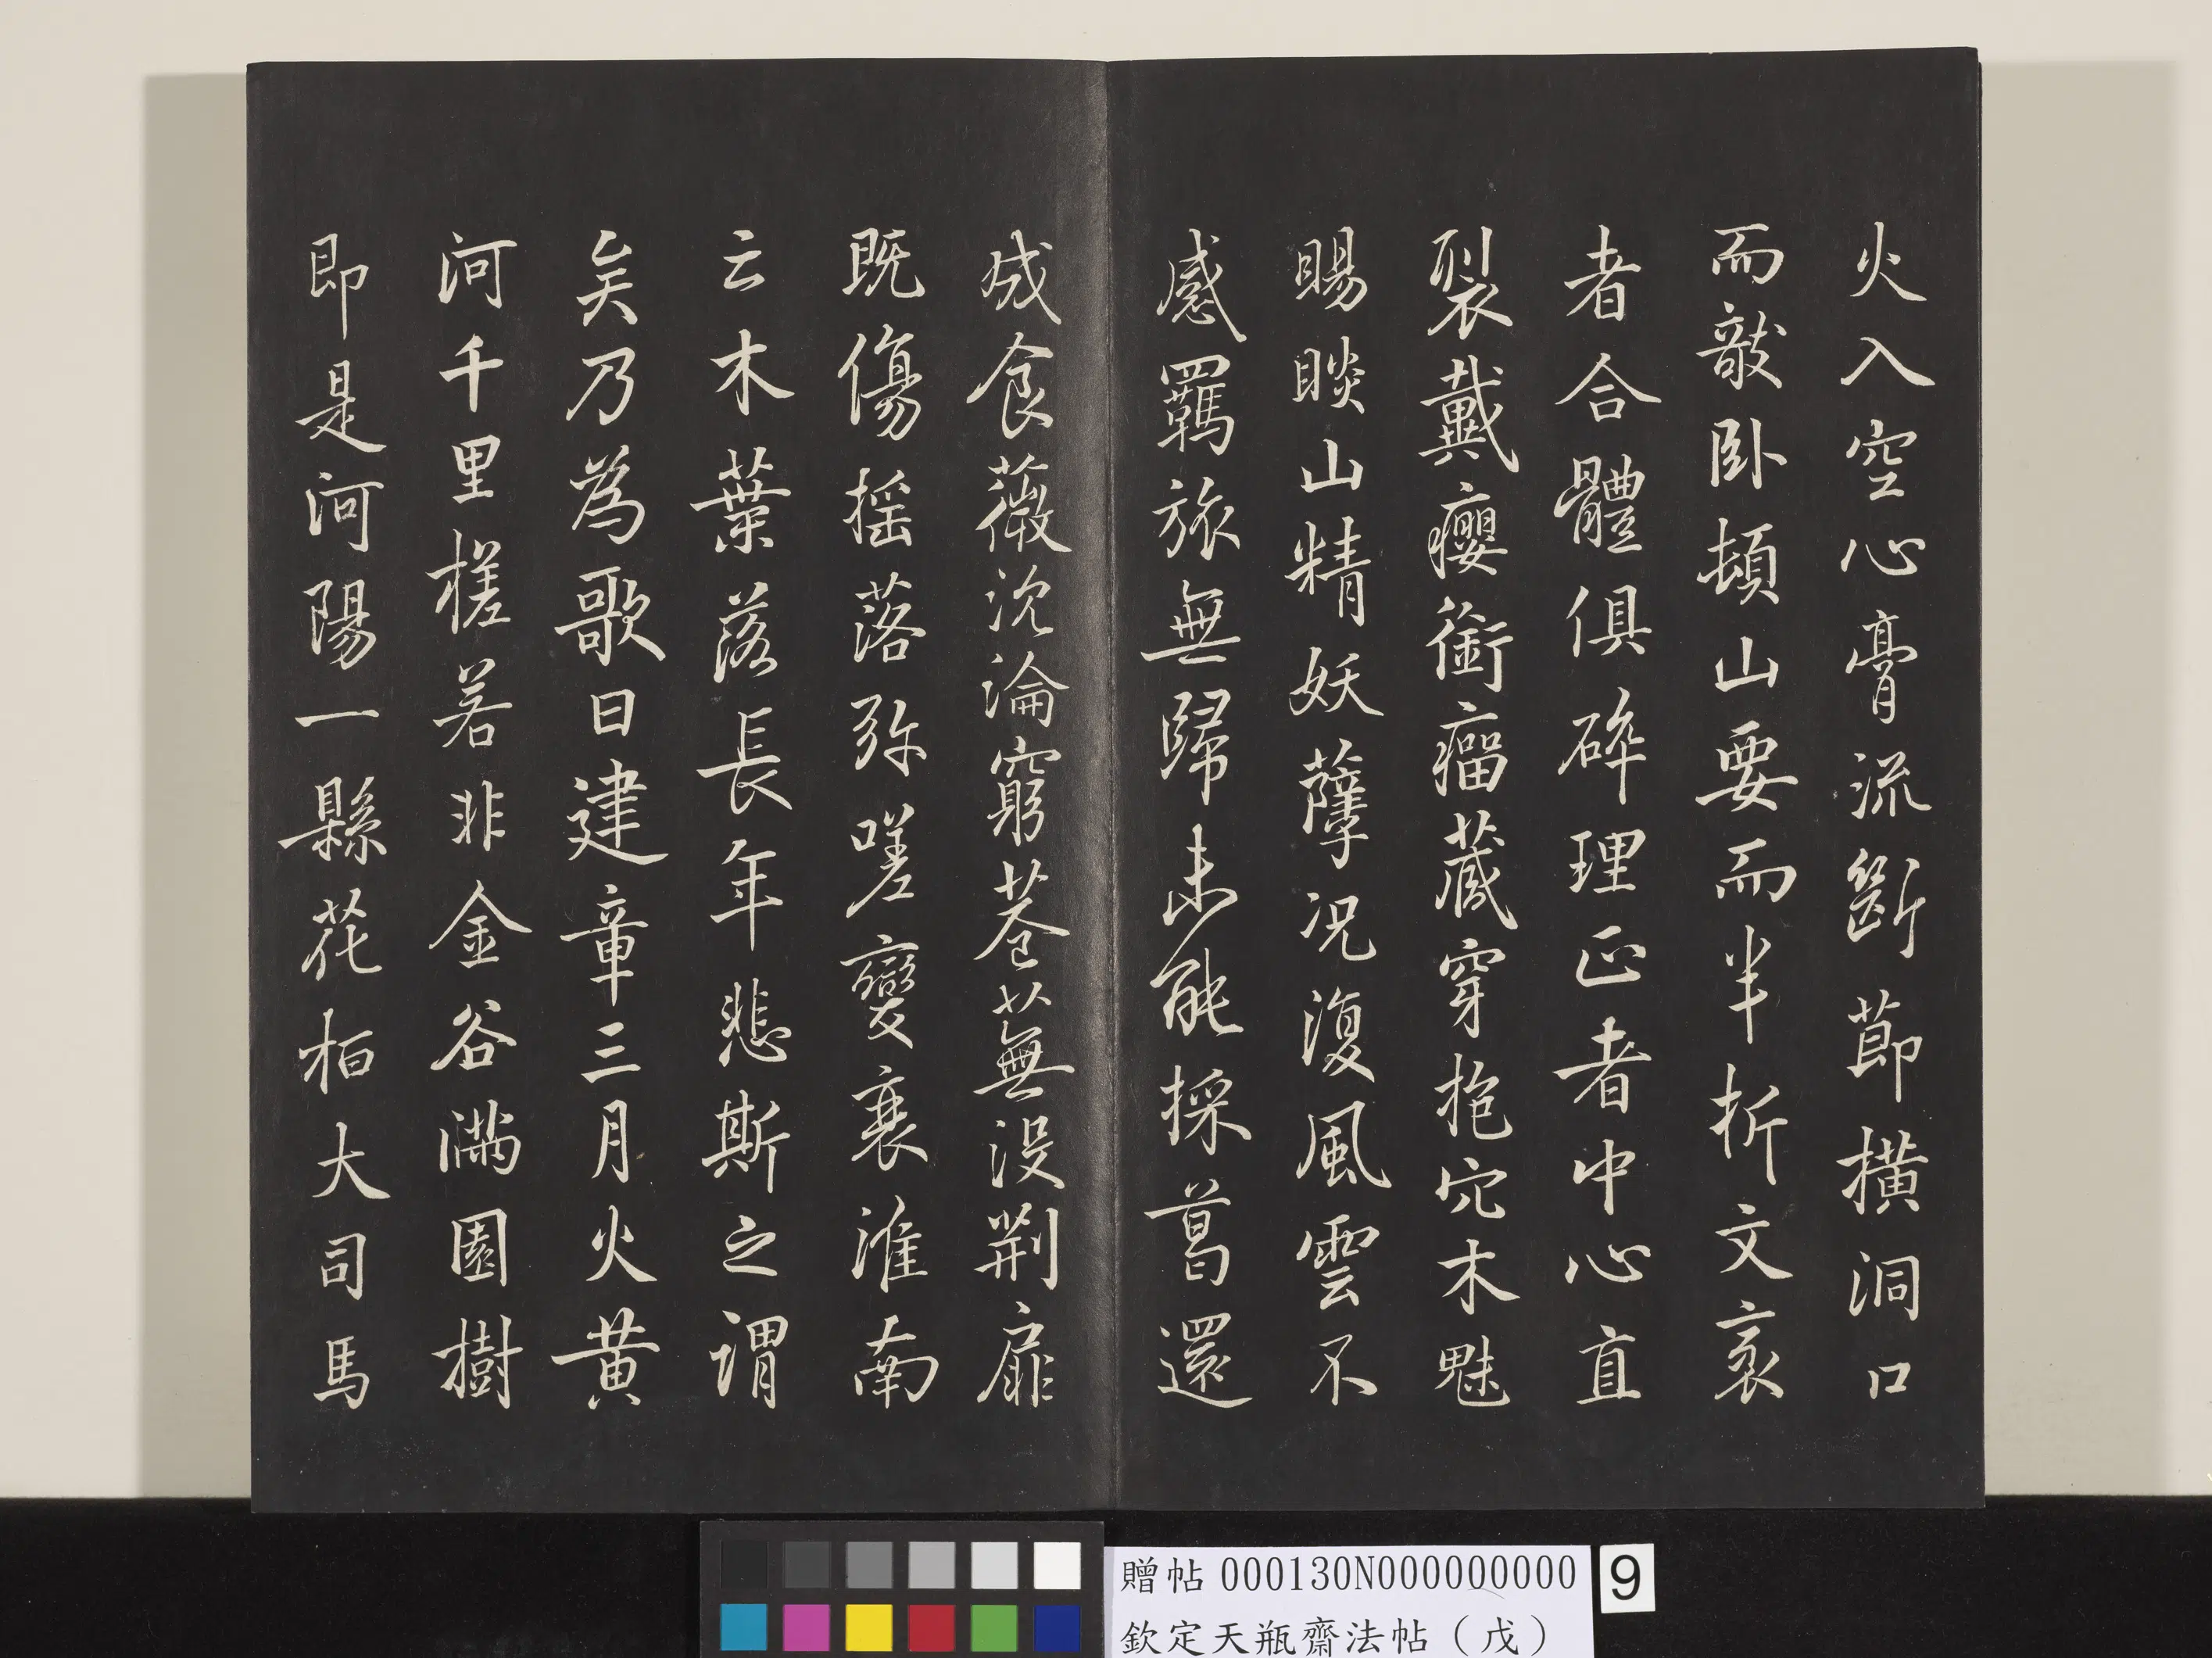 火入空心膏流斷節橫洞口
而敧卧頓山要而半折文衺
者合體俱碎理正者中心直
裂戴癭銜瘤藏穿抱穴木魅
賜睒山精妖孽況復風雲不
感羈旅無歸未能採葛還
成食薇沈淪窮巷蕪没荆扉
既傷搖落弥嗟變衰淮南
云木葉落長年悲斯之謂
矣乃為歌曰建章三月火黄
河千里槎若非金谷滿園樹
即是河陽一縣花桓大司馬
贈帖 000130N000000000
欽定天瓶齋法帖（戊）
9